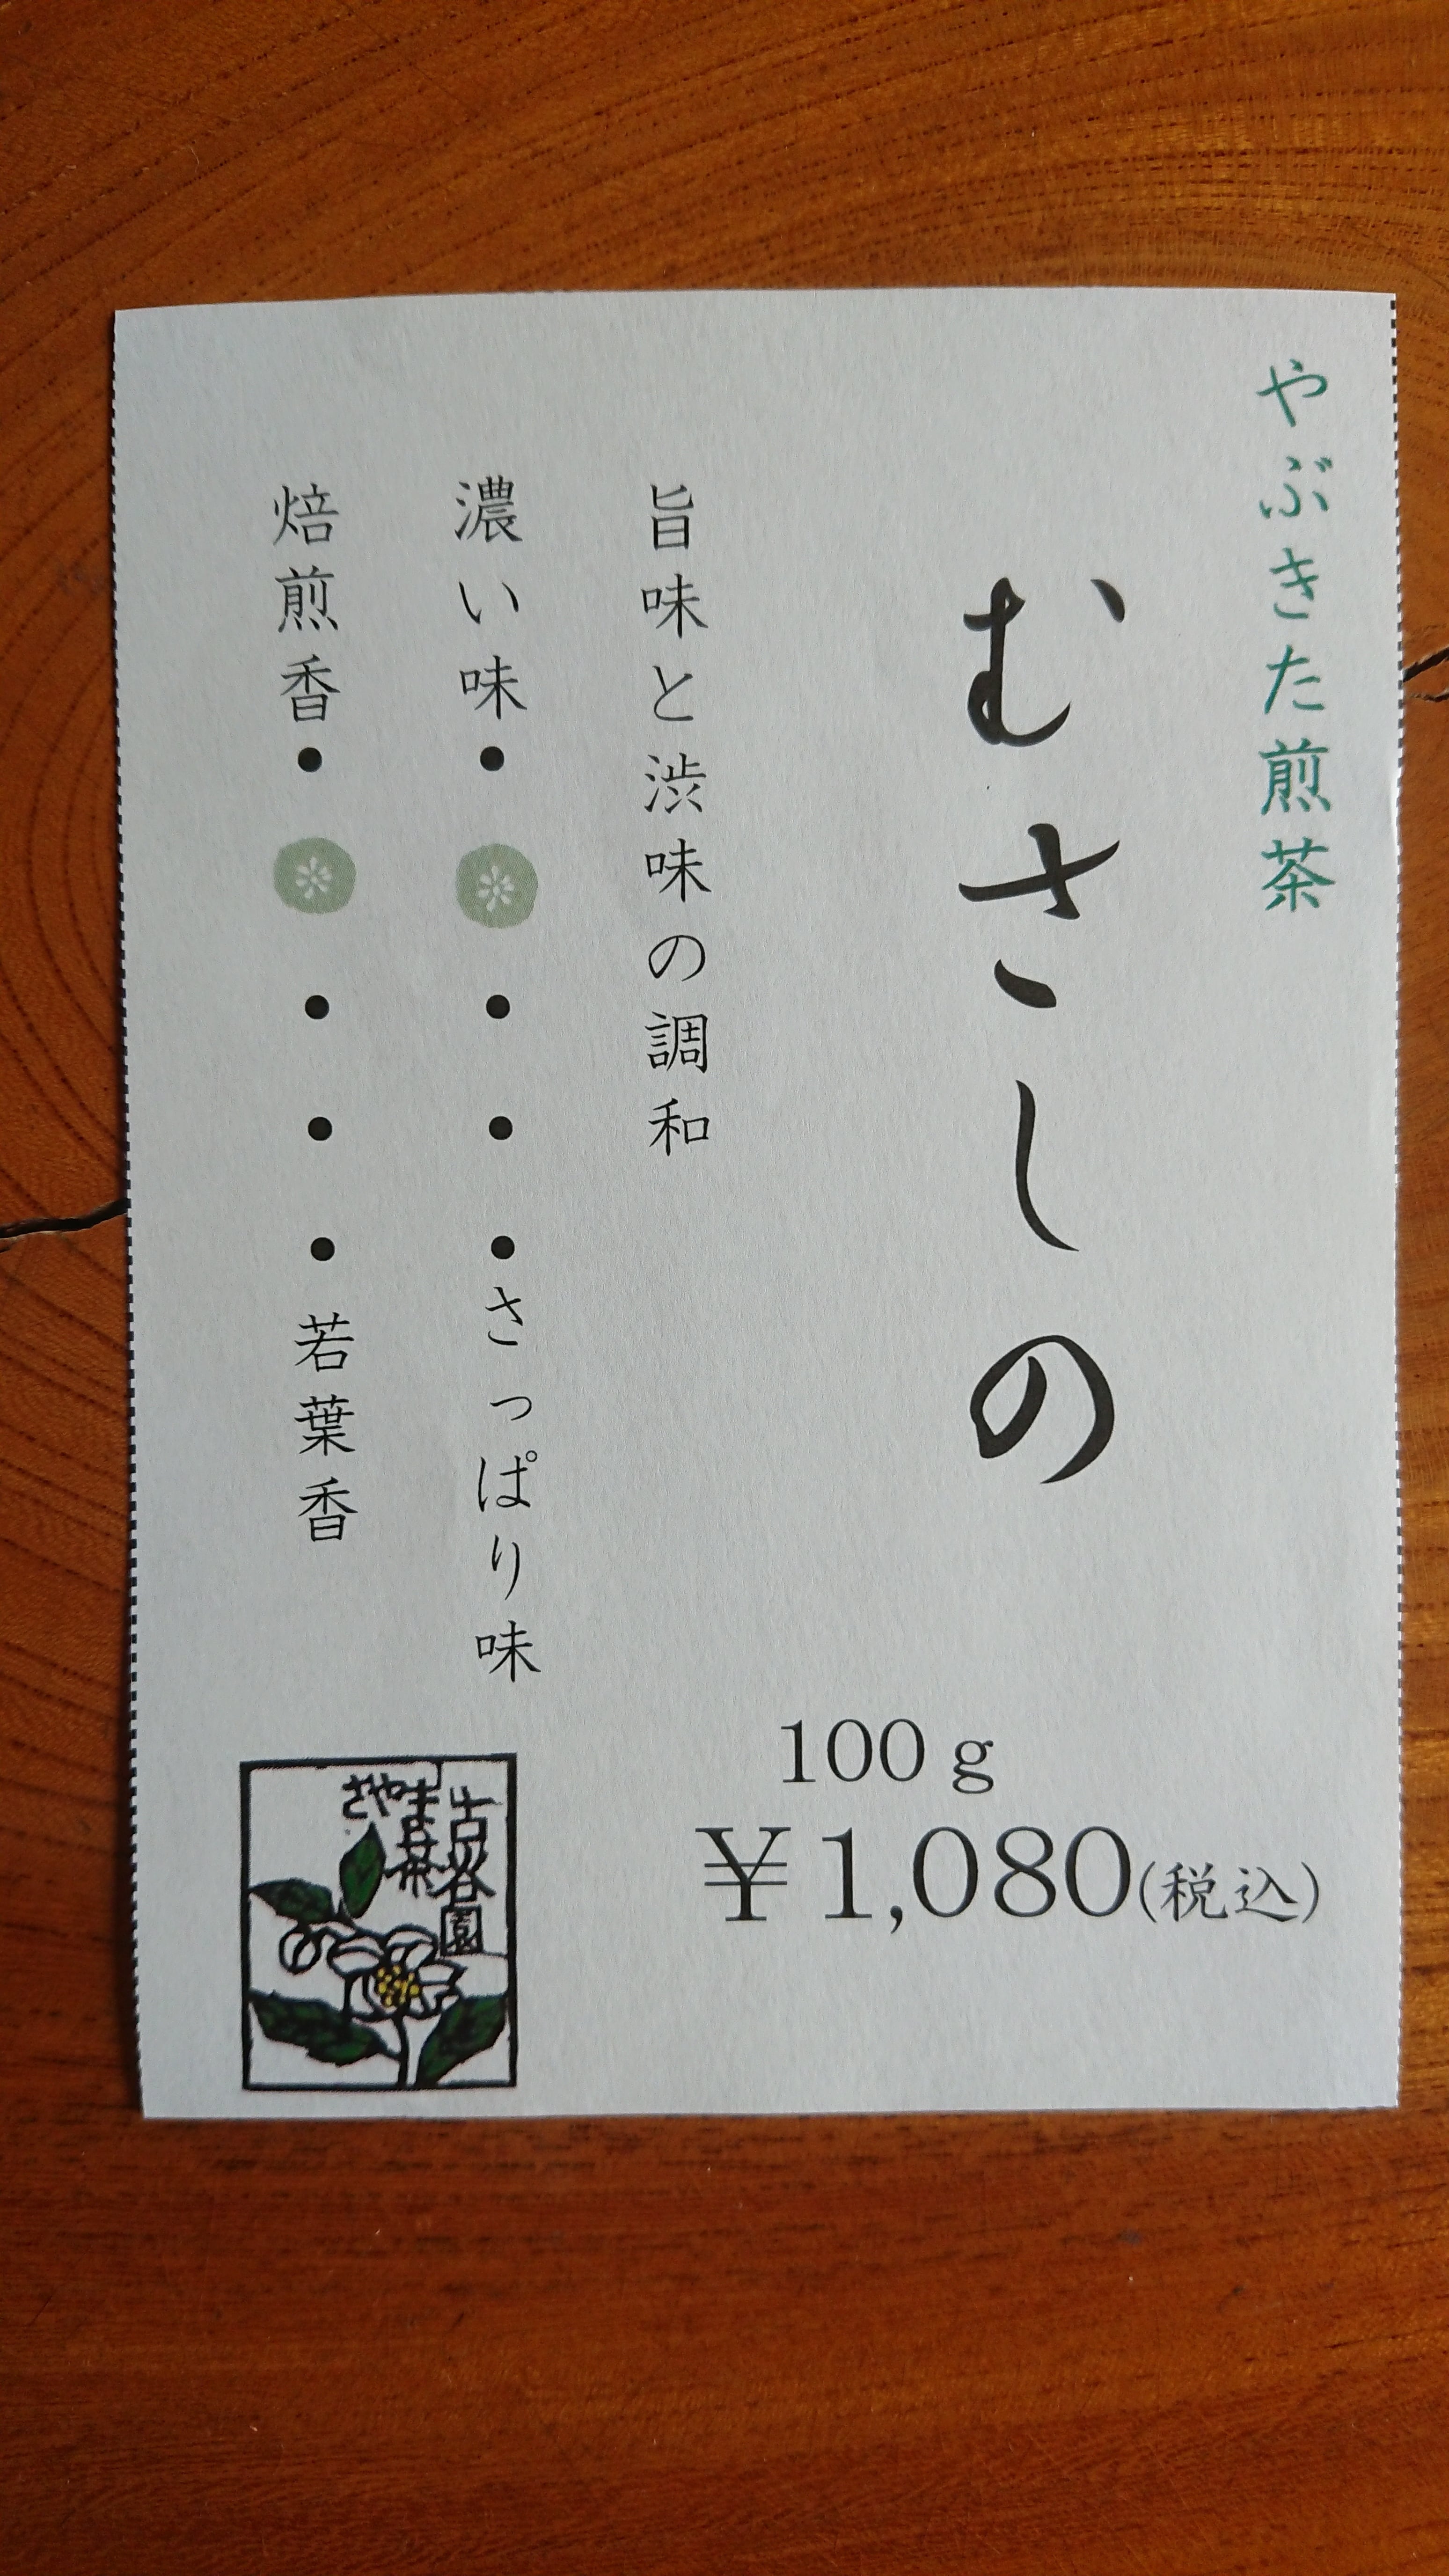 やぶきた煎茶
むさしの
旨味と渋味の調和
濃い味・・・・さっぱり味
焙煎香・・・・若葉香
100g
¥1,080(税込)
古谷園
さやま茶